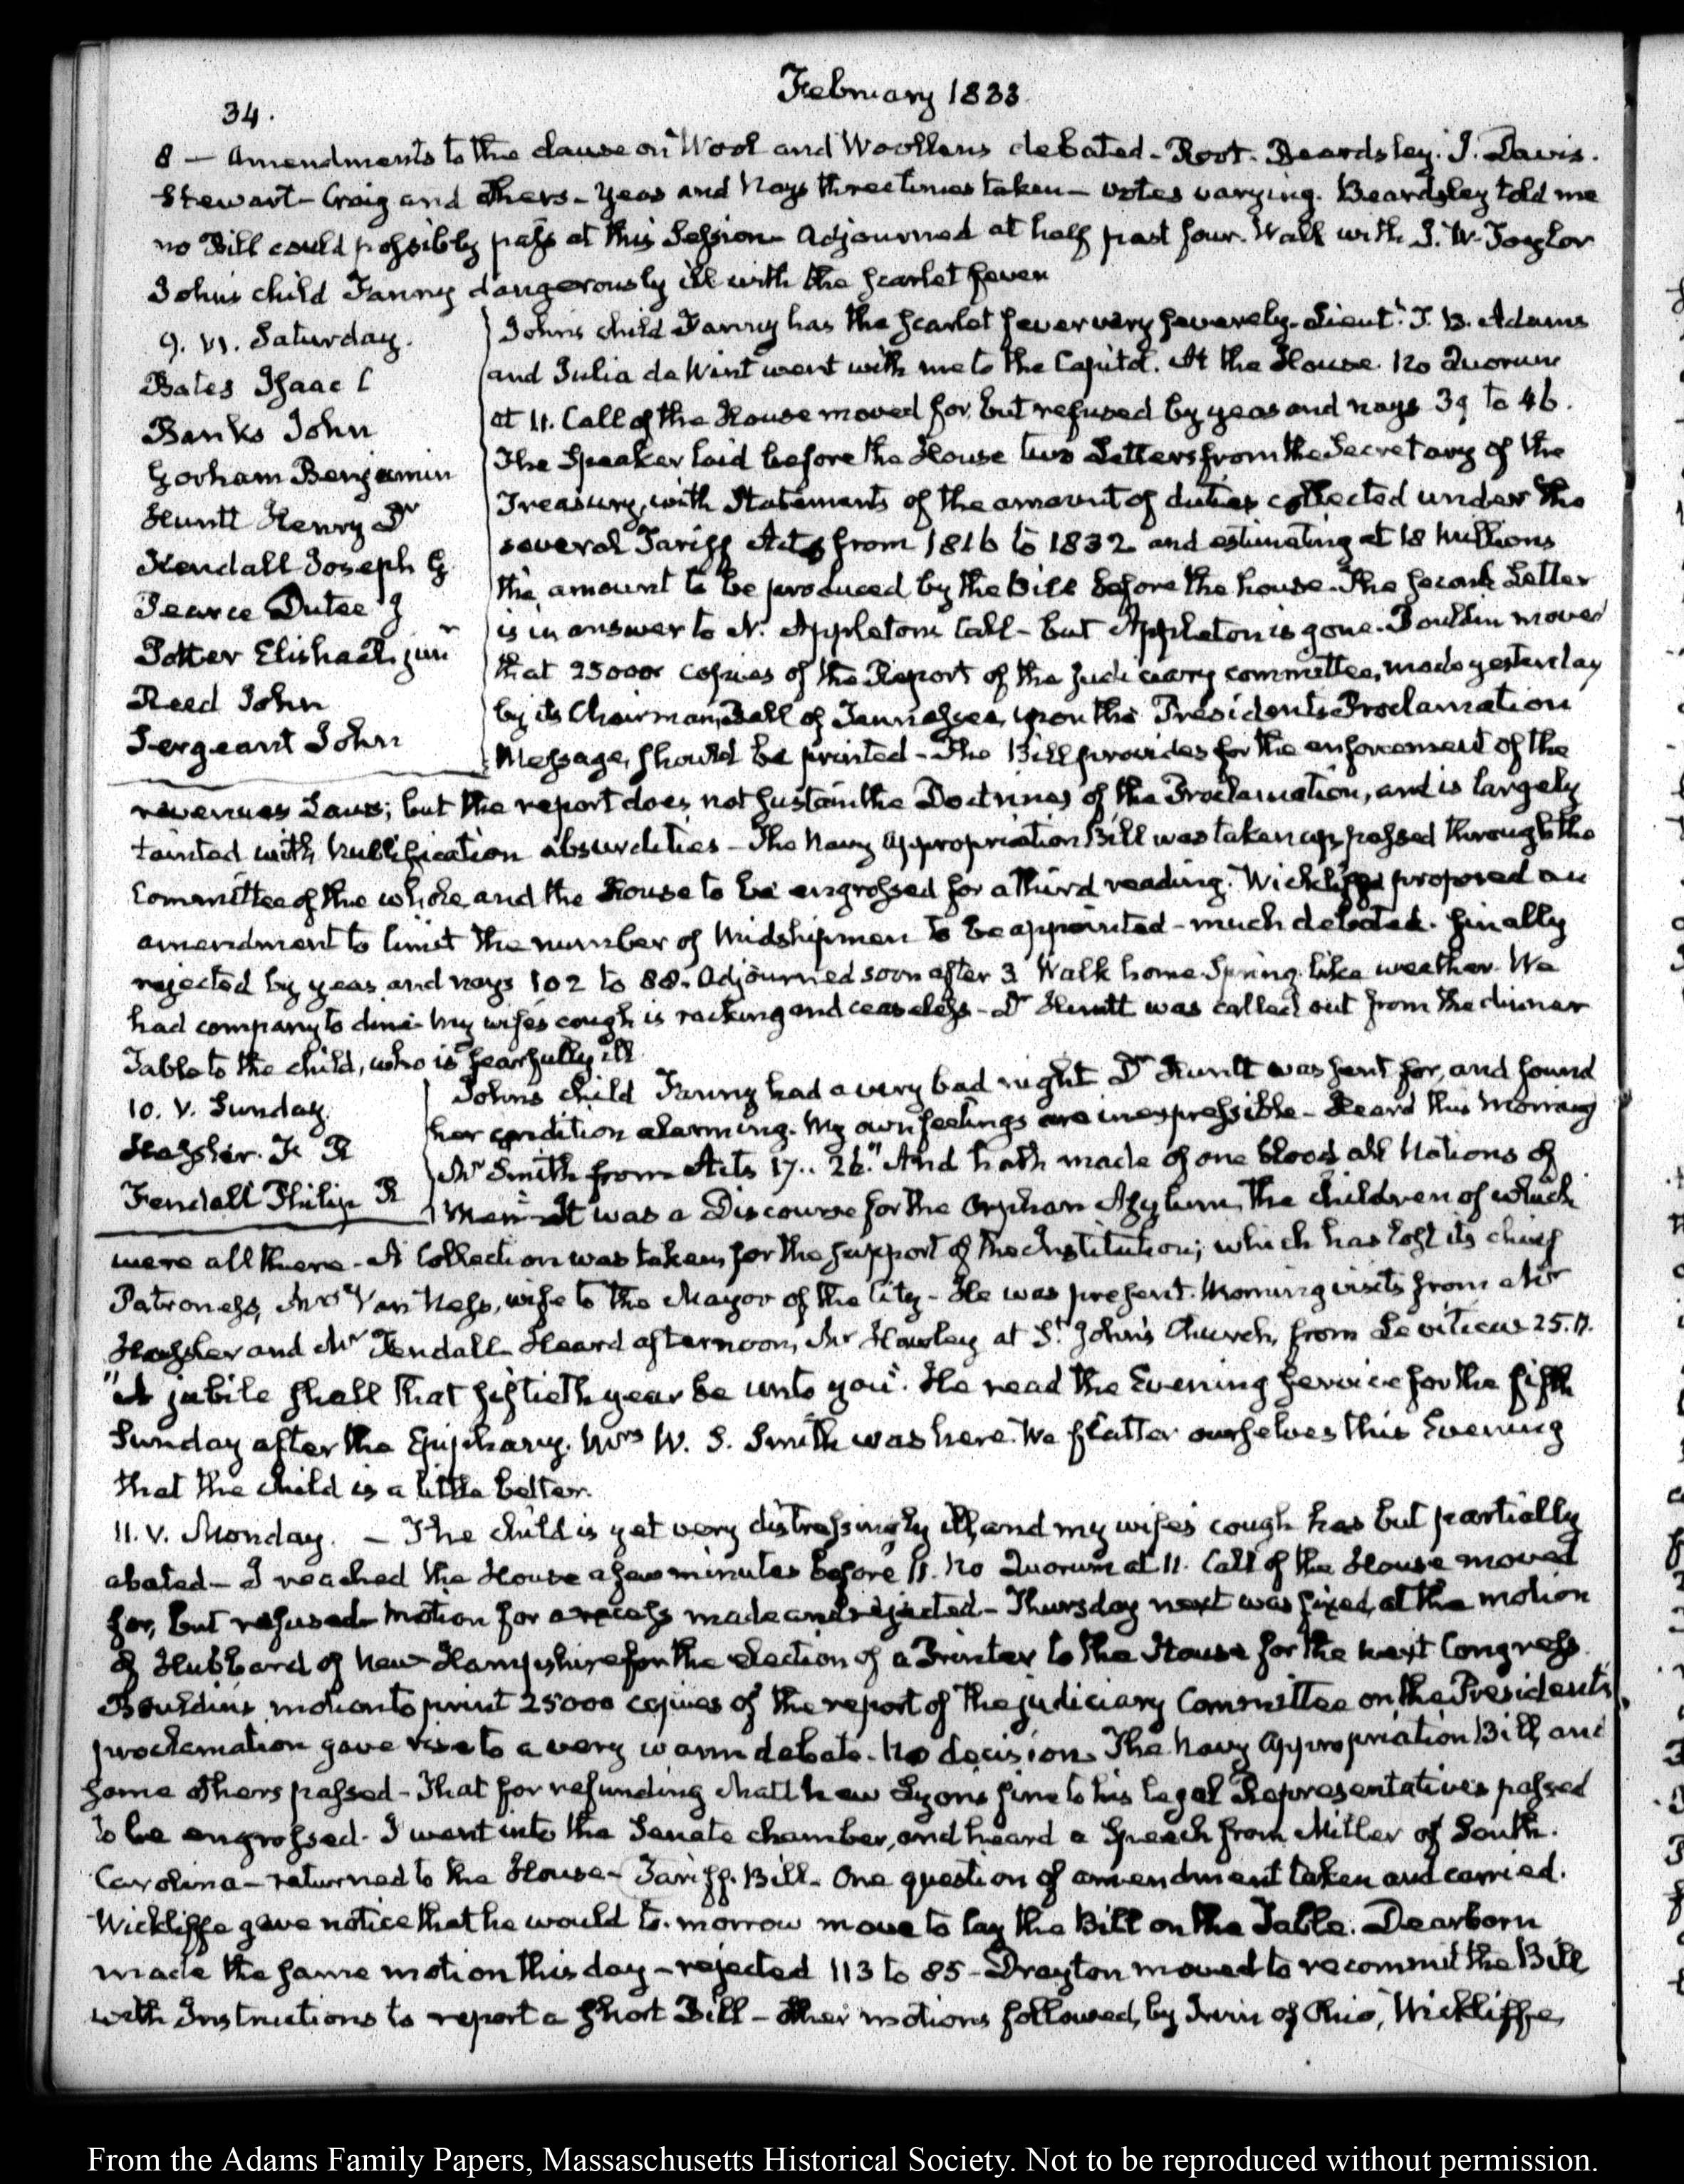 34.
February 1833.
8 — Amendments to the clause on Wool and Woollens debated - Root. Beardsley. J. Davis.
Stewart - Craig and others - Yeas and Nays three times taken - votes varying. Beardsley told me
no Bill could possibly pass at this Session - Adjourned at half past four. Walk with J. W. Taylor
John's child Fanny dangerously ill with the scarlet fever
9. VI. Saturday.
Bates Isaac C
Banks John
Gorham Benjamin
Huntt Henry Dr
Kendall Joseph G
Pearce Dutee J
Potter Elisha R. junr
Reed John
Sergeant John
John's child Fanny has the scarlet fever very severely. T. B. Adams
and Julia de Wint went with me to the Capitol. At the House. No Quorum
at 11. Call of the House moved for, but refused by yeas and nays 39 to 46.
The Speaker laid before the House two Letters from the Secretary of the
Treasury, with Statements of the amount of duties collected under the
several Tariff Acts from 1816 to 1832 and estimating at 18 Millions
the amount to be produced by the Bill before the house. The second Letter
is in answer to N. Appleton's Call - but Appleton is gone. Bouldin moved
that 25000 copies of the Report of the Judiciary committee, made yesterday
by its Chairman, Bell of Tennessee, upon the President's Proclamation
Message, should be printed - The Bill provides for the enforcement of the
revenues Laws; but the report does not sustain the Doctrines of the Proclamation, and is largely
tainted with Nullification absurdities - The Navy Appropriation Bill was taken up, passed through the
Committee of the whole, and the House to be engrossed for a third reading. Wickliffe proposed an
amendment to limit the number of Midshipmen to be appointed - much debated. finally
rejected by yeas and nays 102 to 88. Adjourned soon after 3. Walk home Spring like weather. We
had company to dine. My wife's cough is racking and ceaseless - Dr Huntt was called out from the dinner
Table to the child, who is fearfully ill
10. V. Sunday.
Hassler. F. R
Fendall Philip R
John's child Fanny had a very bad night Dr Huntt was sent for, and found
her condition alarming. My own feelings are inexpressible - Heard this Morning
Mr Smith from Acts 17.. 26. "And hath made of one blood all Nations of
Men" - It was a Discourse for the Orphan Asylum, the children of which
were all there - A Collection was taken for the support of the Institution; which has lost its chief
Patroness, Mrs Van Ness, wife to the Mayor of the City - He was present. Morning visits from Mr
Hassler and Mr Fendall. Heard afternoon, Mr Hawley at St. John's Church, from Leviticus 25. 11.
"A jubile shall that fiftieth year be unto you". He read the Evening service for the fifth
Sunday after the Epiphany. Mrs W. S. Smith was here. We flatter ourselves this Evening
that the child is a little better.
11. V. Monday. — The child is yet very distressingly ill, and my wife's cough has but partially
abated - I reached the House a few minutes before 11. No Quorum at 11. Call of the House moved
for, but refused - Motion for a recess made and rejected - Thursday next was fixed, at the motion
of Hubbard of New-Hampshire for the election of a Printer to the House for the next Congress.
Bouldin's motion to print 25000 copies of the report of the judiciary Committee on the President's
proclamation gave rise to a very warm debate. No decision. The Navy Appropriation Bill, and
some others passed - That for refunding Matthew Lyon's fine to his legal Representatives passed
to be engrossed. I went into the Senate chamber, and heard a Speech from Miller of South.
Carolina - returned to the House - Tariff. Bill. One question of amendment taken and carried.
Wickliffe gave notice that he would to-morrow move to lay the Bill on the Table. Dearborn
made the same motion this day - rejected 113 to 85 - Drayton moved to recommit the Bill
with Instructions to report a short Bill - other motions followed, by Irvin of Ohio, Wickliffe,
From the Adams Family Papers, Massachusetts Historical Society. Not to be reproduced without permission.